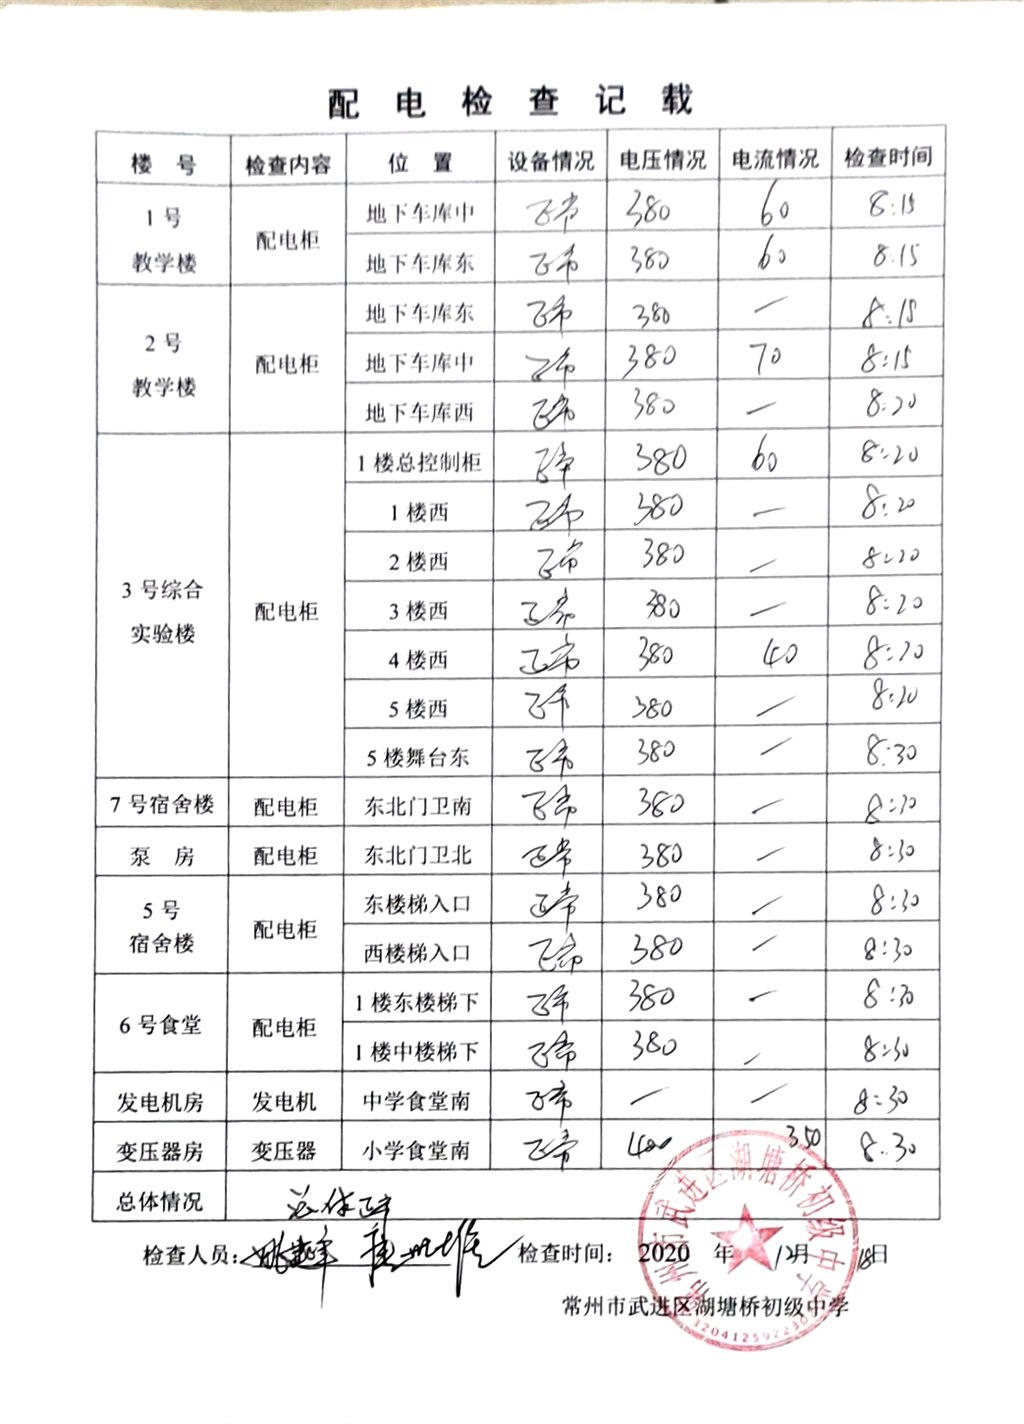 配电检查记载
楼号 检查内容 位置 设备情况 电压情况 电流情况 检查时间
1号教学楼 配电柜 地下车库中 正常 380 60 8:15
地下车库东 正常 380 60 8:15
2号教学楼 配电柜 地下车库东 正常 380 — 8:15
地下车库中 正常 380 70 8:15
地下车库西 正常 380 — 8:20
3号综合实验楼 配电柜 1楼总控制柜 正常 380 60 8:20
1楼西 正常 380 — 8:20
2楼西 正常 380 — 8:20
3楼西 正常 380 — 8:20
4楼西 正常 380 40 8:20
5楼西 正常 380 — 8:20
5楼舞台东 正常 380 — 8:30
7号宿舍楼 配电柜 东北门卫南 正常 380 — 8:30
泵房 配电柜 东北门卫北 正常 380 — 8:30
5号宿舍楼 配电柜 东楼梯入口 正常 380 — 8:30
西楼梯入口 正常 380 — 8:30
6号食堂 配电柜 1楼东楼梯下 正常 380 — 8:30
1楼中楼梯下 正常 380 — 8:30
发电机房 发电机 中学食堂南 正常 — — 8:30
变压器房 变压器 小学食堂南 正常 400 350 8:30
总体情况 总体正常
检查人员: 检查时间: 2020年12月18日
常州市武进区湖塘桥初级中学
常州市武进区湖塘桥初级中学